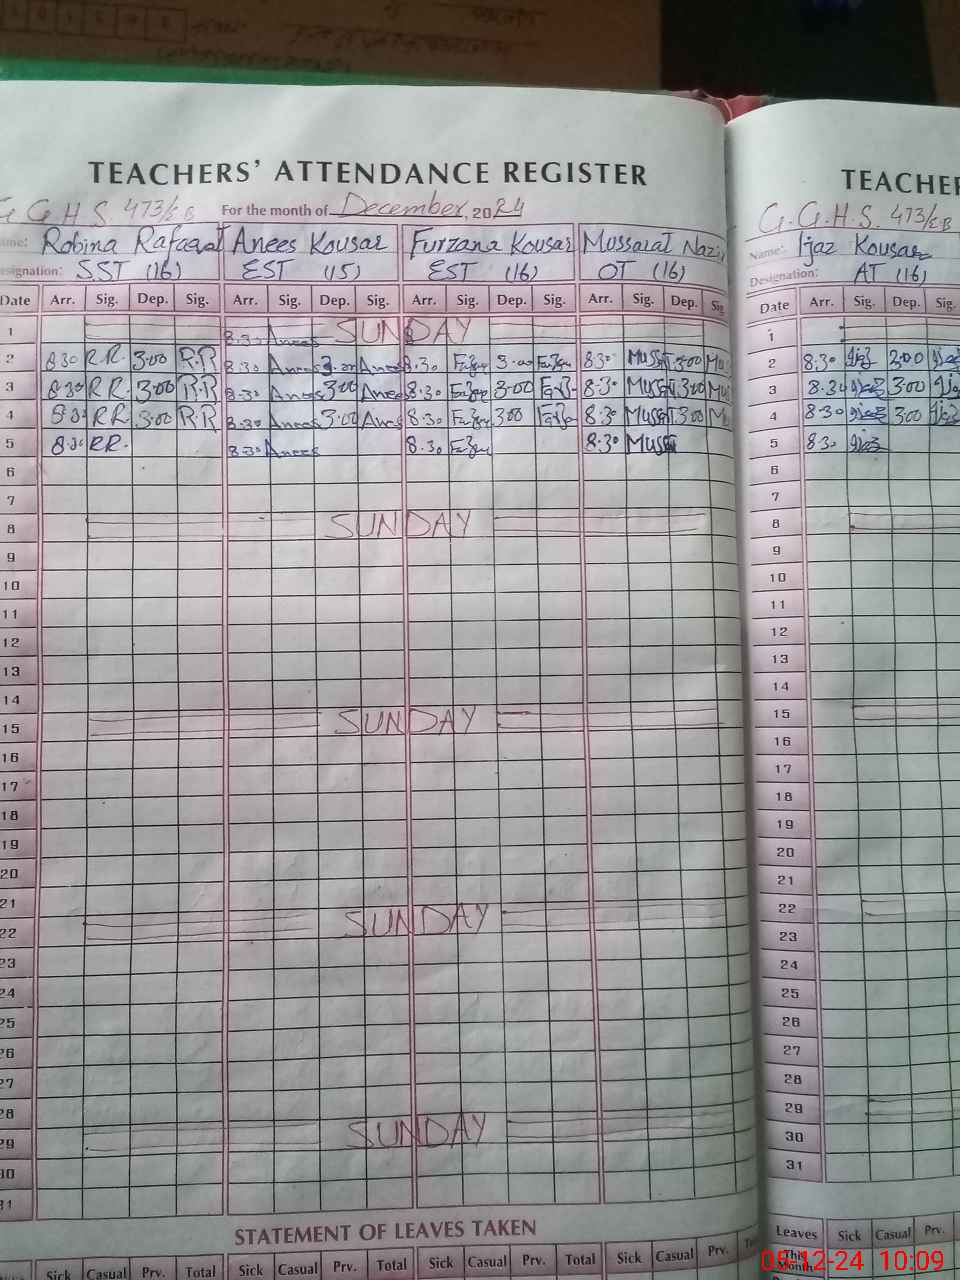 TEACHERS' ATTENDANCE REGISTER
G.G.H.S. 473/EB For the month of December, 2024
Name: Robina Rafaqat Anees Kousar Furzana Kousar Mussarat Nazir
Designation: SST (16) EST (15) EST (16) OT (16)
Date Arr. Sig. Dep. Sig. Arr. Sig. Dep. Sig. Arr. Sig. Dep. Sig. Arr. Sig. Dep. Sig.
1 8:30 Anees SUNDAY
2 8:30 R.R. 3:00 R.R 8:30 Anees 3:00 Anees 8:30 3:00 8:30 3:00
3 8:30 R.R. 3:00 R.R 8:30 Anees 3:00 Anees 8:30 3:00 8:30 3:00
4 8:30 R.R. 3:00 R.R 8:30 Anees 3:00 Anees 8:30 300 8:30 3:00
5 8:30 R.R. 8:30 Anees 8:30 8:30
6
7
8 SUNDAY
9
10
11
12
13
14
15 SUNDAY
16
17
18
19
20
21
22 SUNDAY
23
24
25
26
27
28
29 SUNDAY
30
31
STATEMENT OF LEAVES TAKEN
Sick Casual Prv. Total Sick Casual Prv. Total Sick Casual Prv.
TEACHER
G.G.H.S. 473/EB
Name: Ijaz Kousar
Designation: AT (16)
Date Arr. Sig. Dep. Sig.
1
2 8:30 Ijaz 3:00 Ijaz
3 8:30 Ijaz 300 Ijaz
4 8:30 Ijaz 300 Ijaz
5 8:30 Ijaz
6
7
8
9
10
11
12
13
14
15
16
17
18
19
20
21
22
23
24
25
26
27
28
29
30
31
Leaves Sick Casual Prv.
This Month
05-12-24 10:09